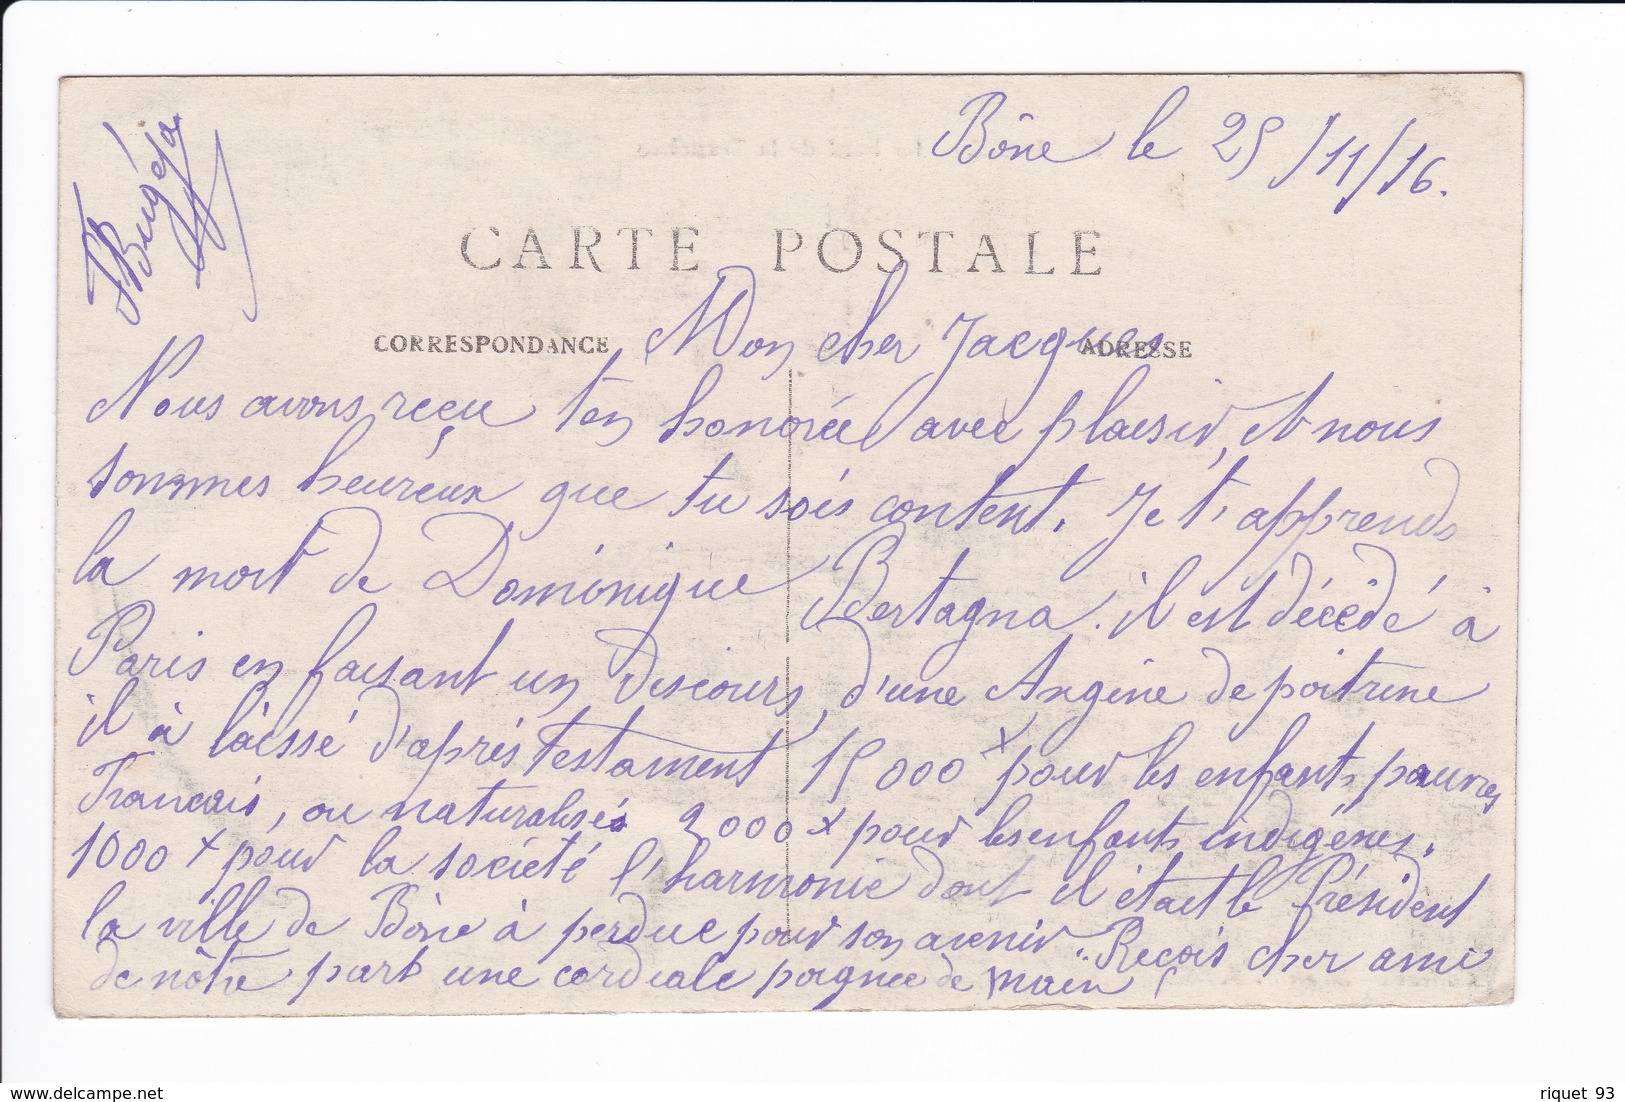 Bône le 25/11/16.
CARTE POSTALE
CORRESPONDANCE
ADRESSE
Mon cher Jacques
Nous avons reçu ton honorée avec plaisir, et nous
sommes heureux que tu sois content. Je t'apprends
la mort de Dominique Bertagna. il est décédé à
Paris en faisant un discours, d'une Angine de poitrine
il à laissé d'après testament 15000 x pour les enfants pauvres
Francais, ou naturalisés 2000 x pour les enfants indigénes.
1000 x pour la société l'harmonie dont il était le Président
la ville de Bône à perdue pour son avenir. Recois cher ami
de nôtre part une cordiale poignée de main
Bugéja
delcampe.net
riquet 93